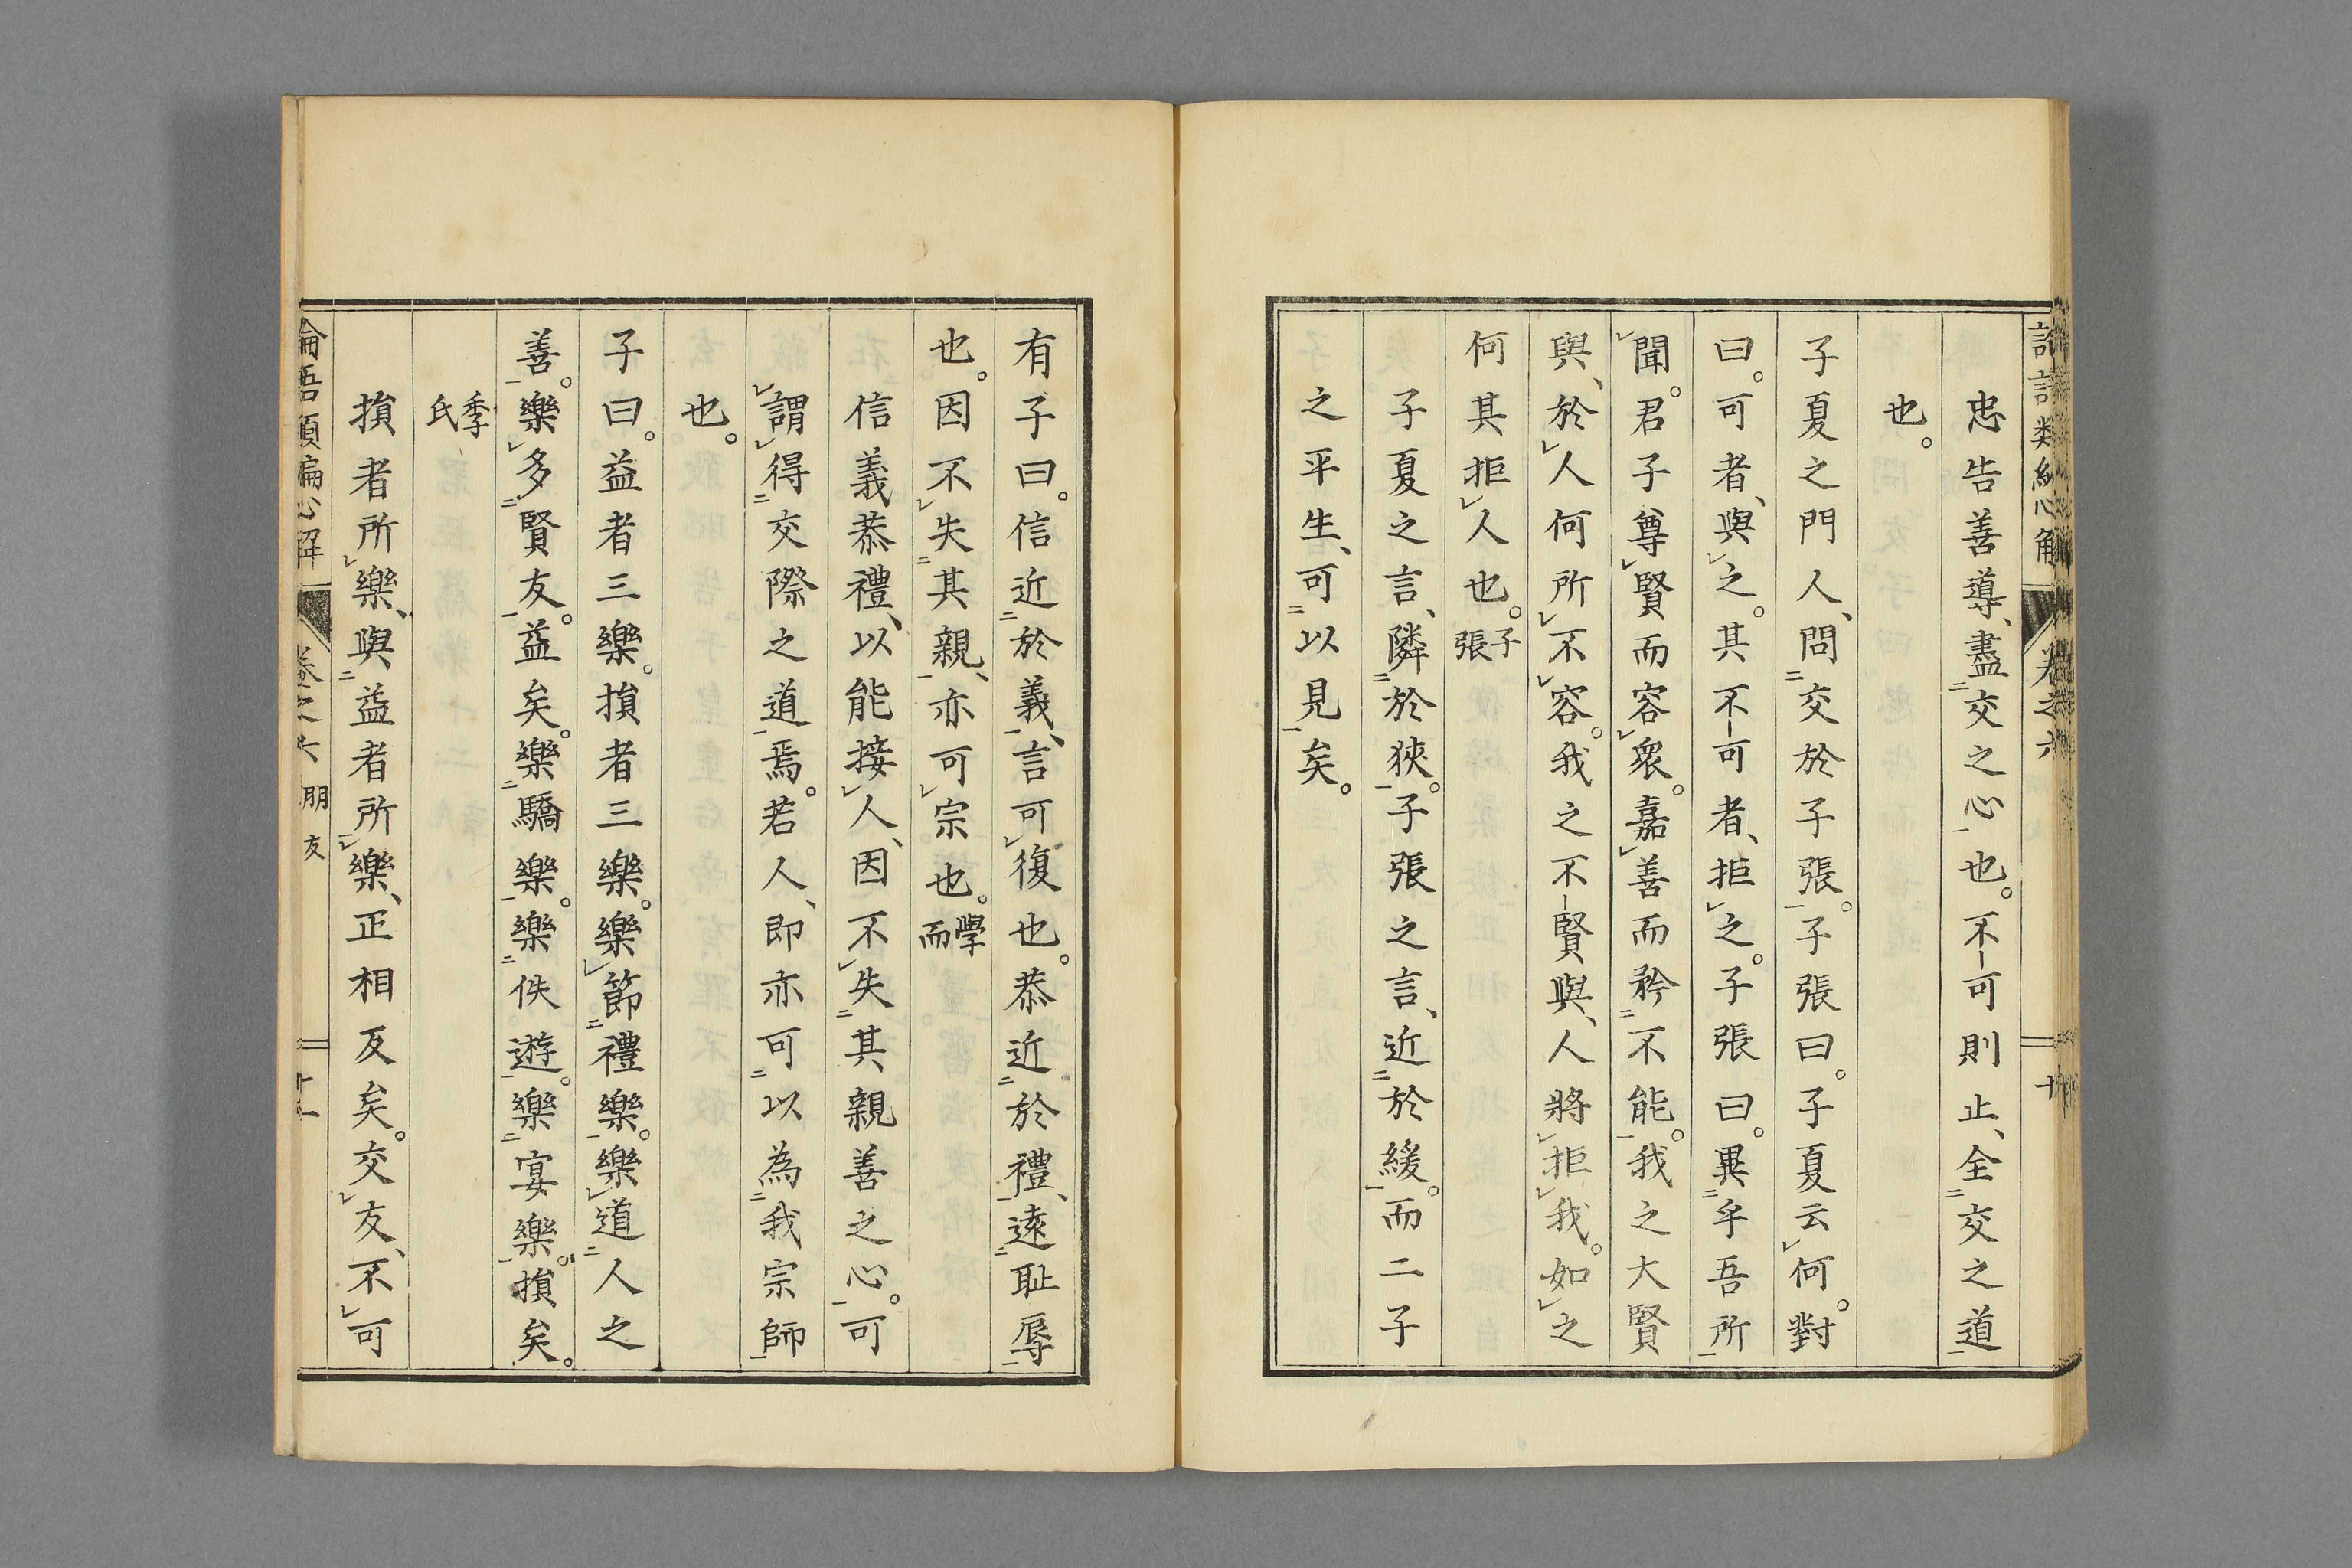 忠告善導、盡交之心也。不可則止、全交之道
也。
子夏之門人、問交於子張。子張曰。子夏云何。對
曰。可者、與之。其不可者、拒之。子張曰。異乎吾所
聞。君子尊賢而容衆。嘉善而矜不能。我之大賢
與、於人何所不容。我之不賢與、人將拒我。如之
何其拒人也。子張
子夏之言、隣於狹。子張之言、近於緩。而二子
之平生、可以見矣。
有子曰。信近於義、言可復也。恭近於禮、遠恥辱
也。因不失其親、亦可宗也。學而
信義恭禮、以能接人、因不失其親善之心。可
謂得交際之道焉。若人、即亦可以為我宗師
也。
子曰。益者三樂。損者三樂。樂節禮樂。樂道人之
善。樂多賢友。益矣。樂驕樂。樂佚遊。樂宴樂。損矣。
季氏
損者所樂、與益者所樂、正相反矣。交友、不可
論語類編心解 卷之六 朋友 十一